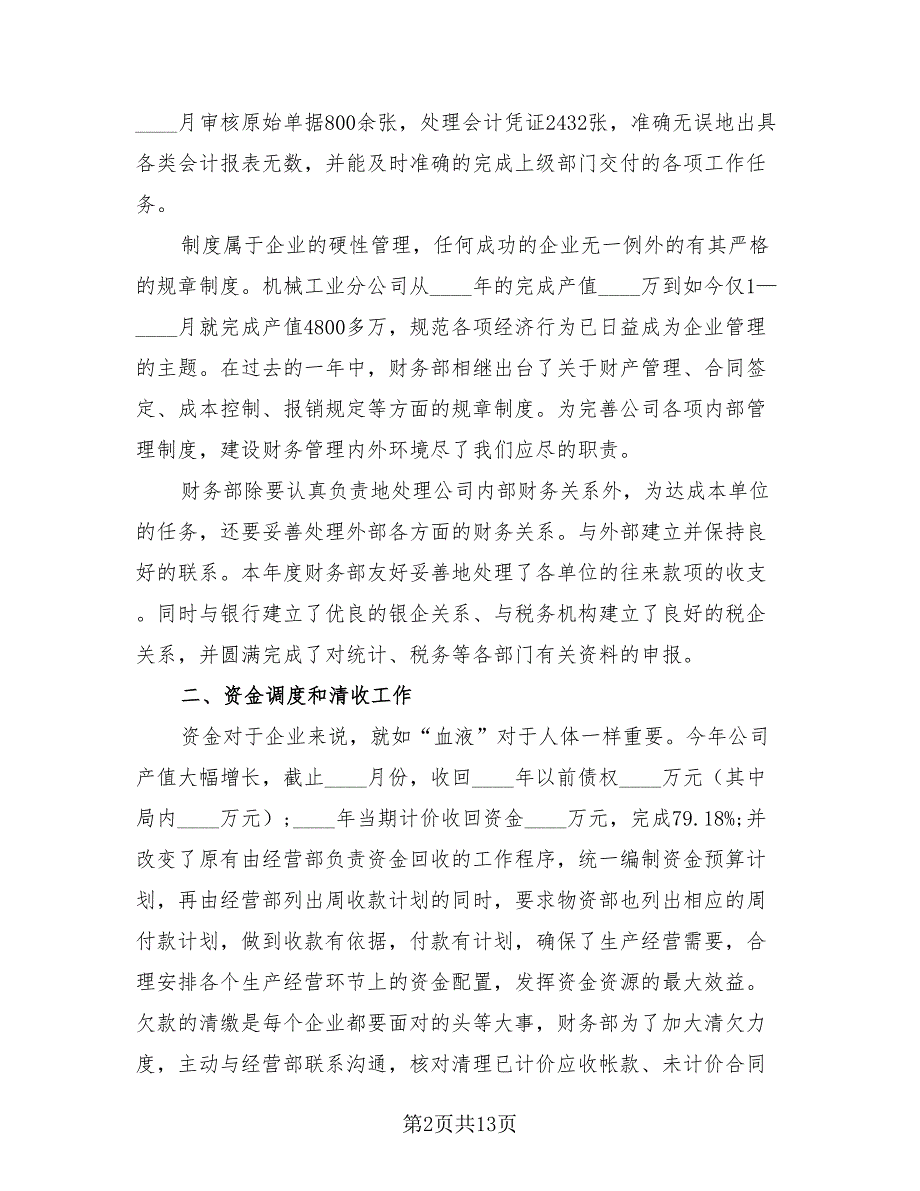 ____月审核原始单据800余张，处理会计凭证2432张，准确无误地出具
各类会计报表无数，并能及时准确的完成上级部门交付的各项工作任
务。
制度属于企业的硬性管理，任何成功的企业无一例外的有其严格
的规章制度。机械工业分公司从____年的完成产值____万到如今仅1—
____月就完成产值4800多万，规范各项经济行为已日益成为企业管理
的主题。在过去的一年中，财务部相继出台了关于财产管理、合同签
定、成本控制、报销规定等方面的规章制度。为完善公司各项内部管
理制度，建设财务管理内外环境尽了我们应尽的职责。
财务部除要认真负责地处理公司内部财务关系外，为达成本单位
的任务，还要妥善处理外部各方面的财务关系。与外部建立并保持良
好的联系。本年度财务部友好妥善地处理了各单位的往来款项的收支
。同时与银行建立了优良的银企关系、与税务机构建立了良好的税企
关系，并圆满完成了对统计、税务等各部门有关资料的申报。
二、资金调度和清收工作
资金对于企业来说，就如“血液”对于人体一样重要。今年公司
产值大幅增长，截止____月份，收回____年以前债权____万元（其中
局内____万元）;____年当期计价收回资金____万元，完成79.18%;并
改变了原有由经营部负责资金回收的工作程序，统一编制资金预算计
划，再由经营部列出周收款计划的同时，要求物资部也列出相应的周
付款计划，做到收款有依据，付款有计划，确保了生产经营需要，合
理安排各个生产经营环节上的资金配置，发挥资金资源的最大效益。
欠款的清缴是每个企业都要面对的头等大事，财务部为了加大清欠力
度，主动与经营部联系沟通，核对清理已计价应收帐款、未计价合同
第2页共13页